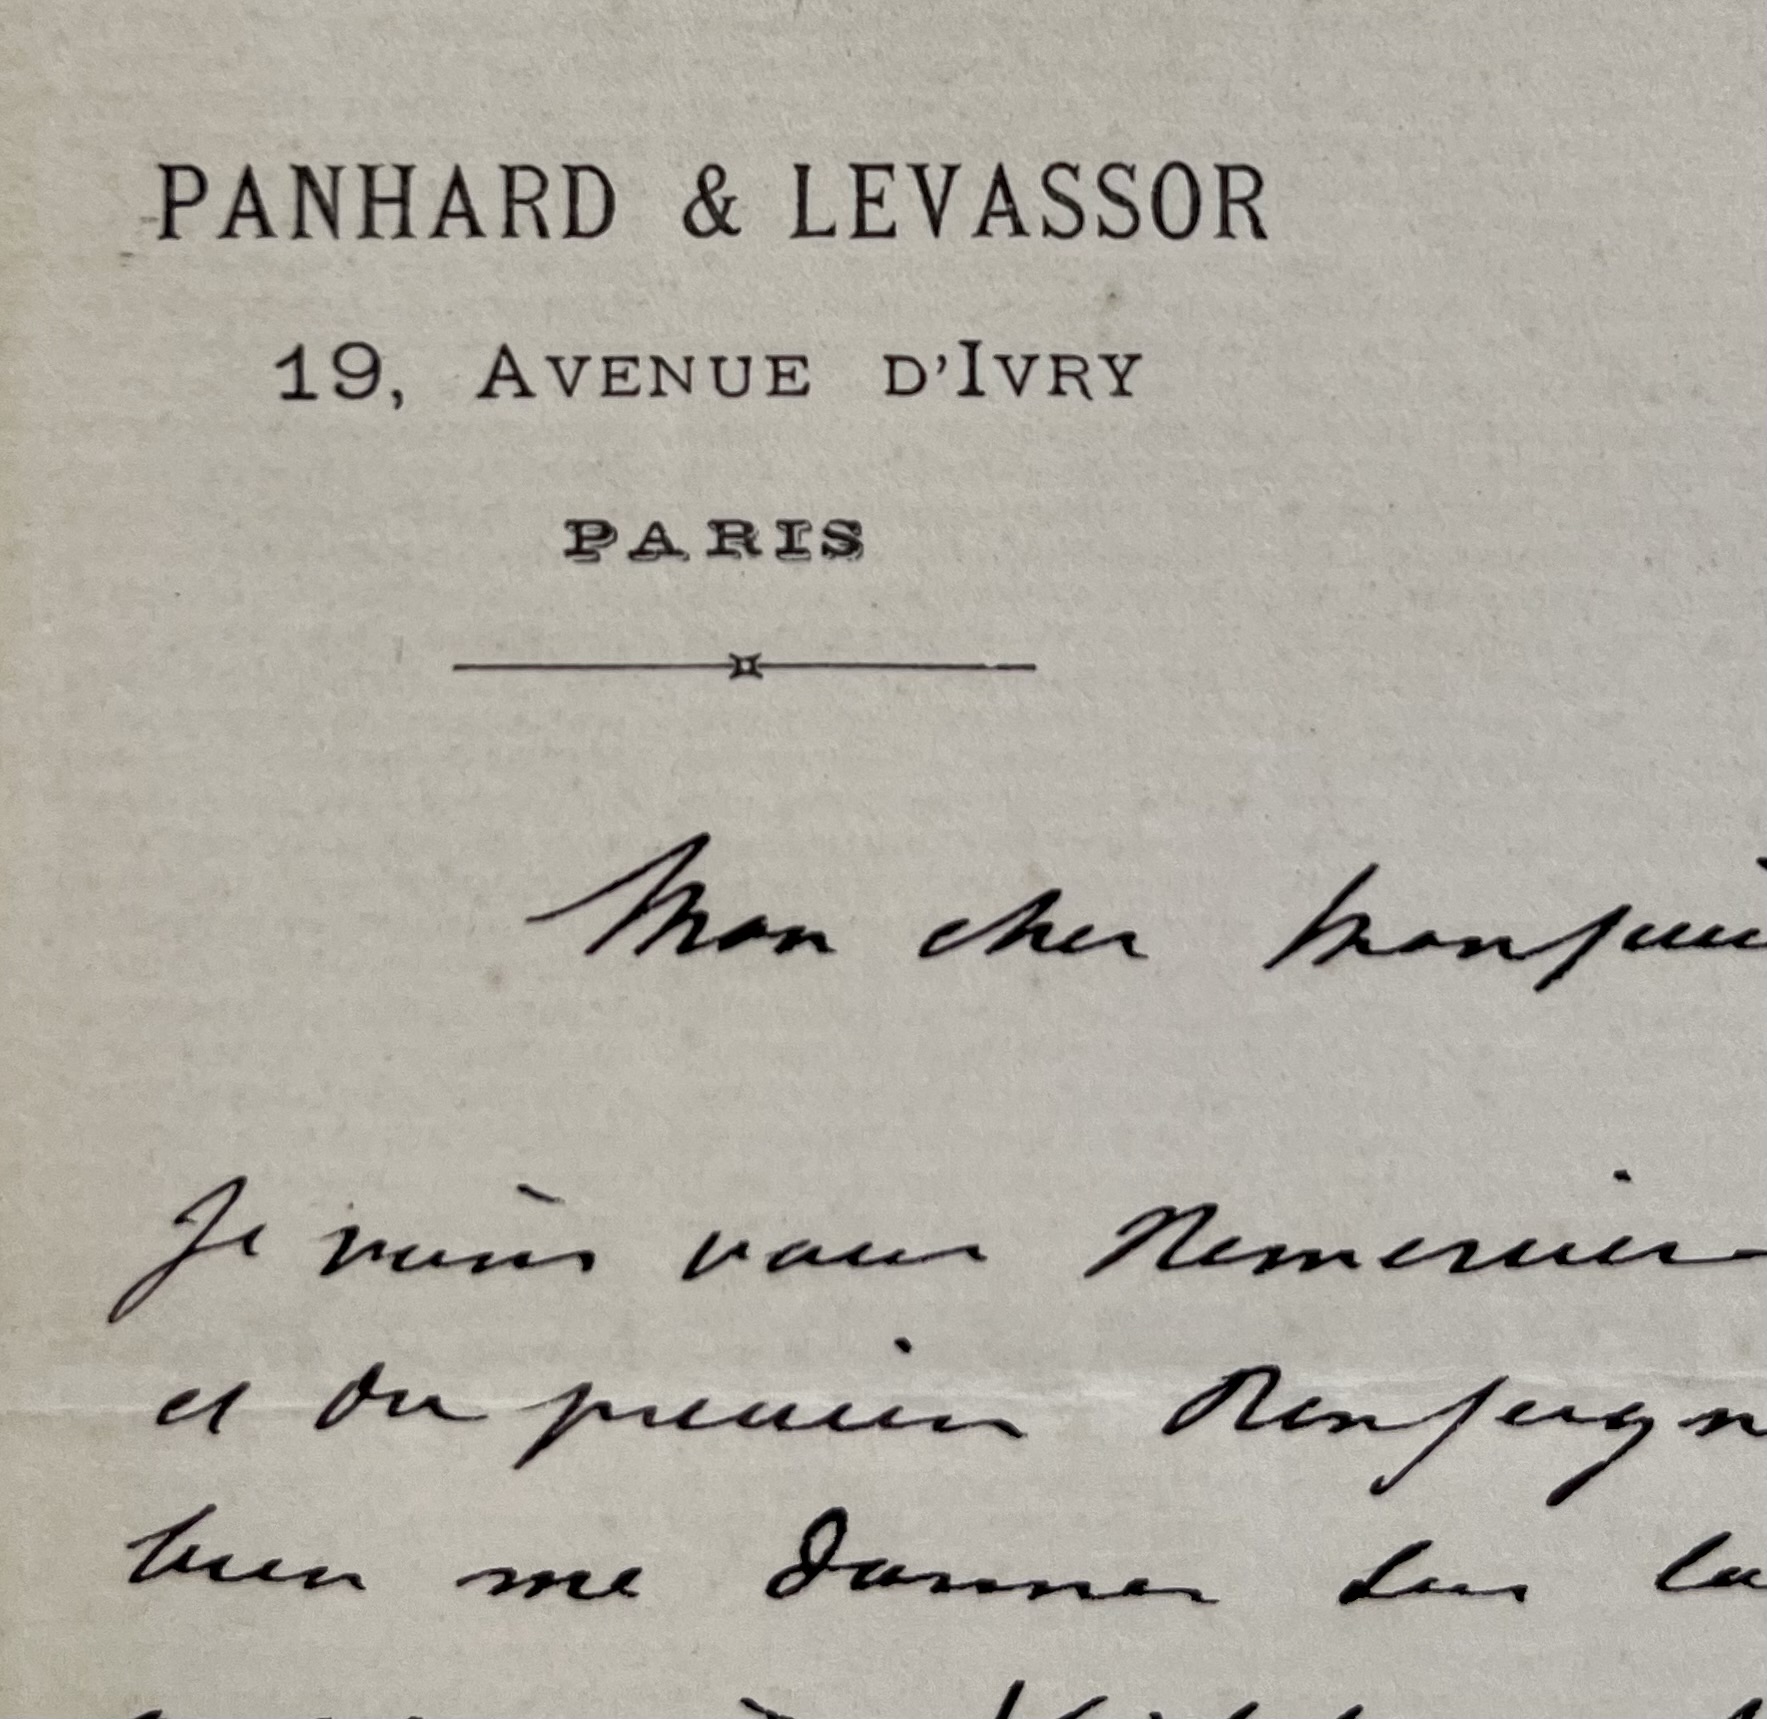 PANHARD & LEVASSOR
19, AVENUE D'IVRY
PARIS
Mon cher Monsieu
Je vous
et du premier Renseign
bien me donner sur la